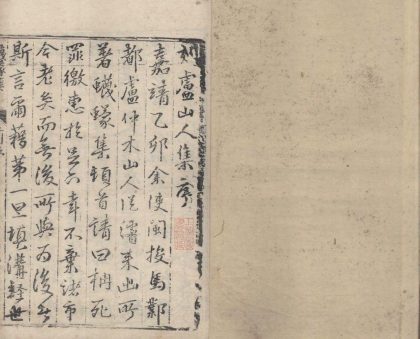 刻盧山人集序
嘉靖乙卯余使閩投馬鄴
都盧仲木山人從濬來出所
著蠛蠓集頓首請曰柟死
罪徼惠於足下幸不棄諸市
今老矣而無後所與為後者
斯言爾藉第一旦填溝壑世